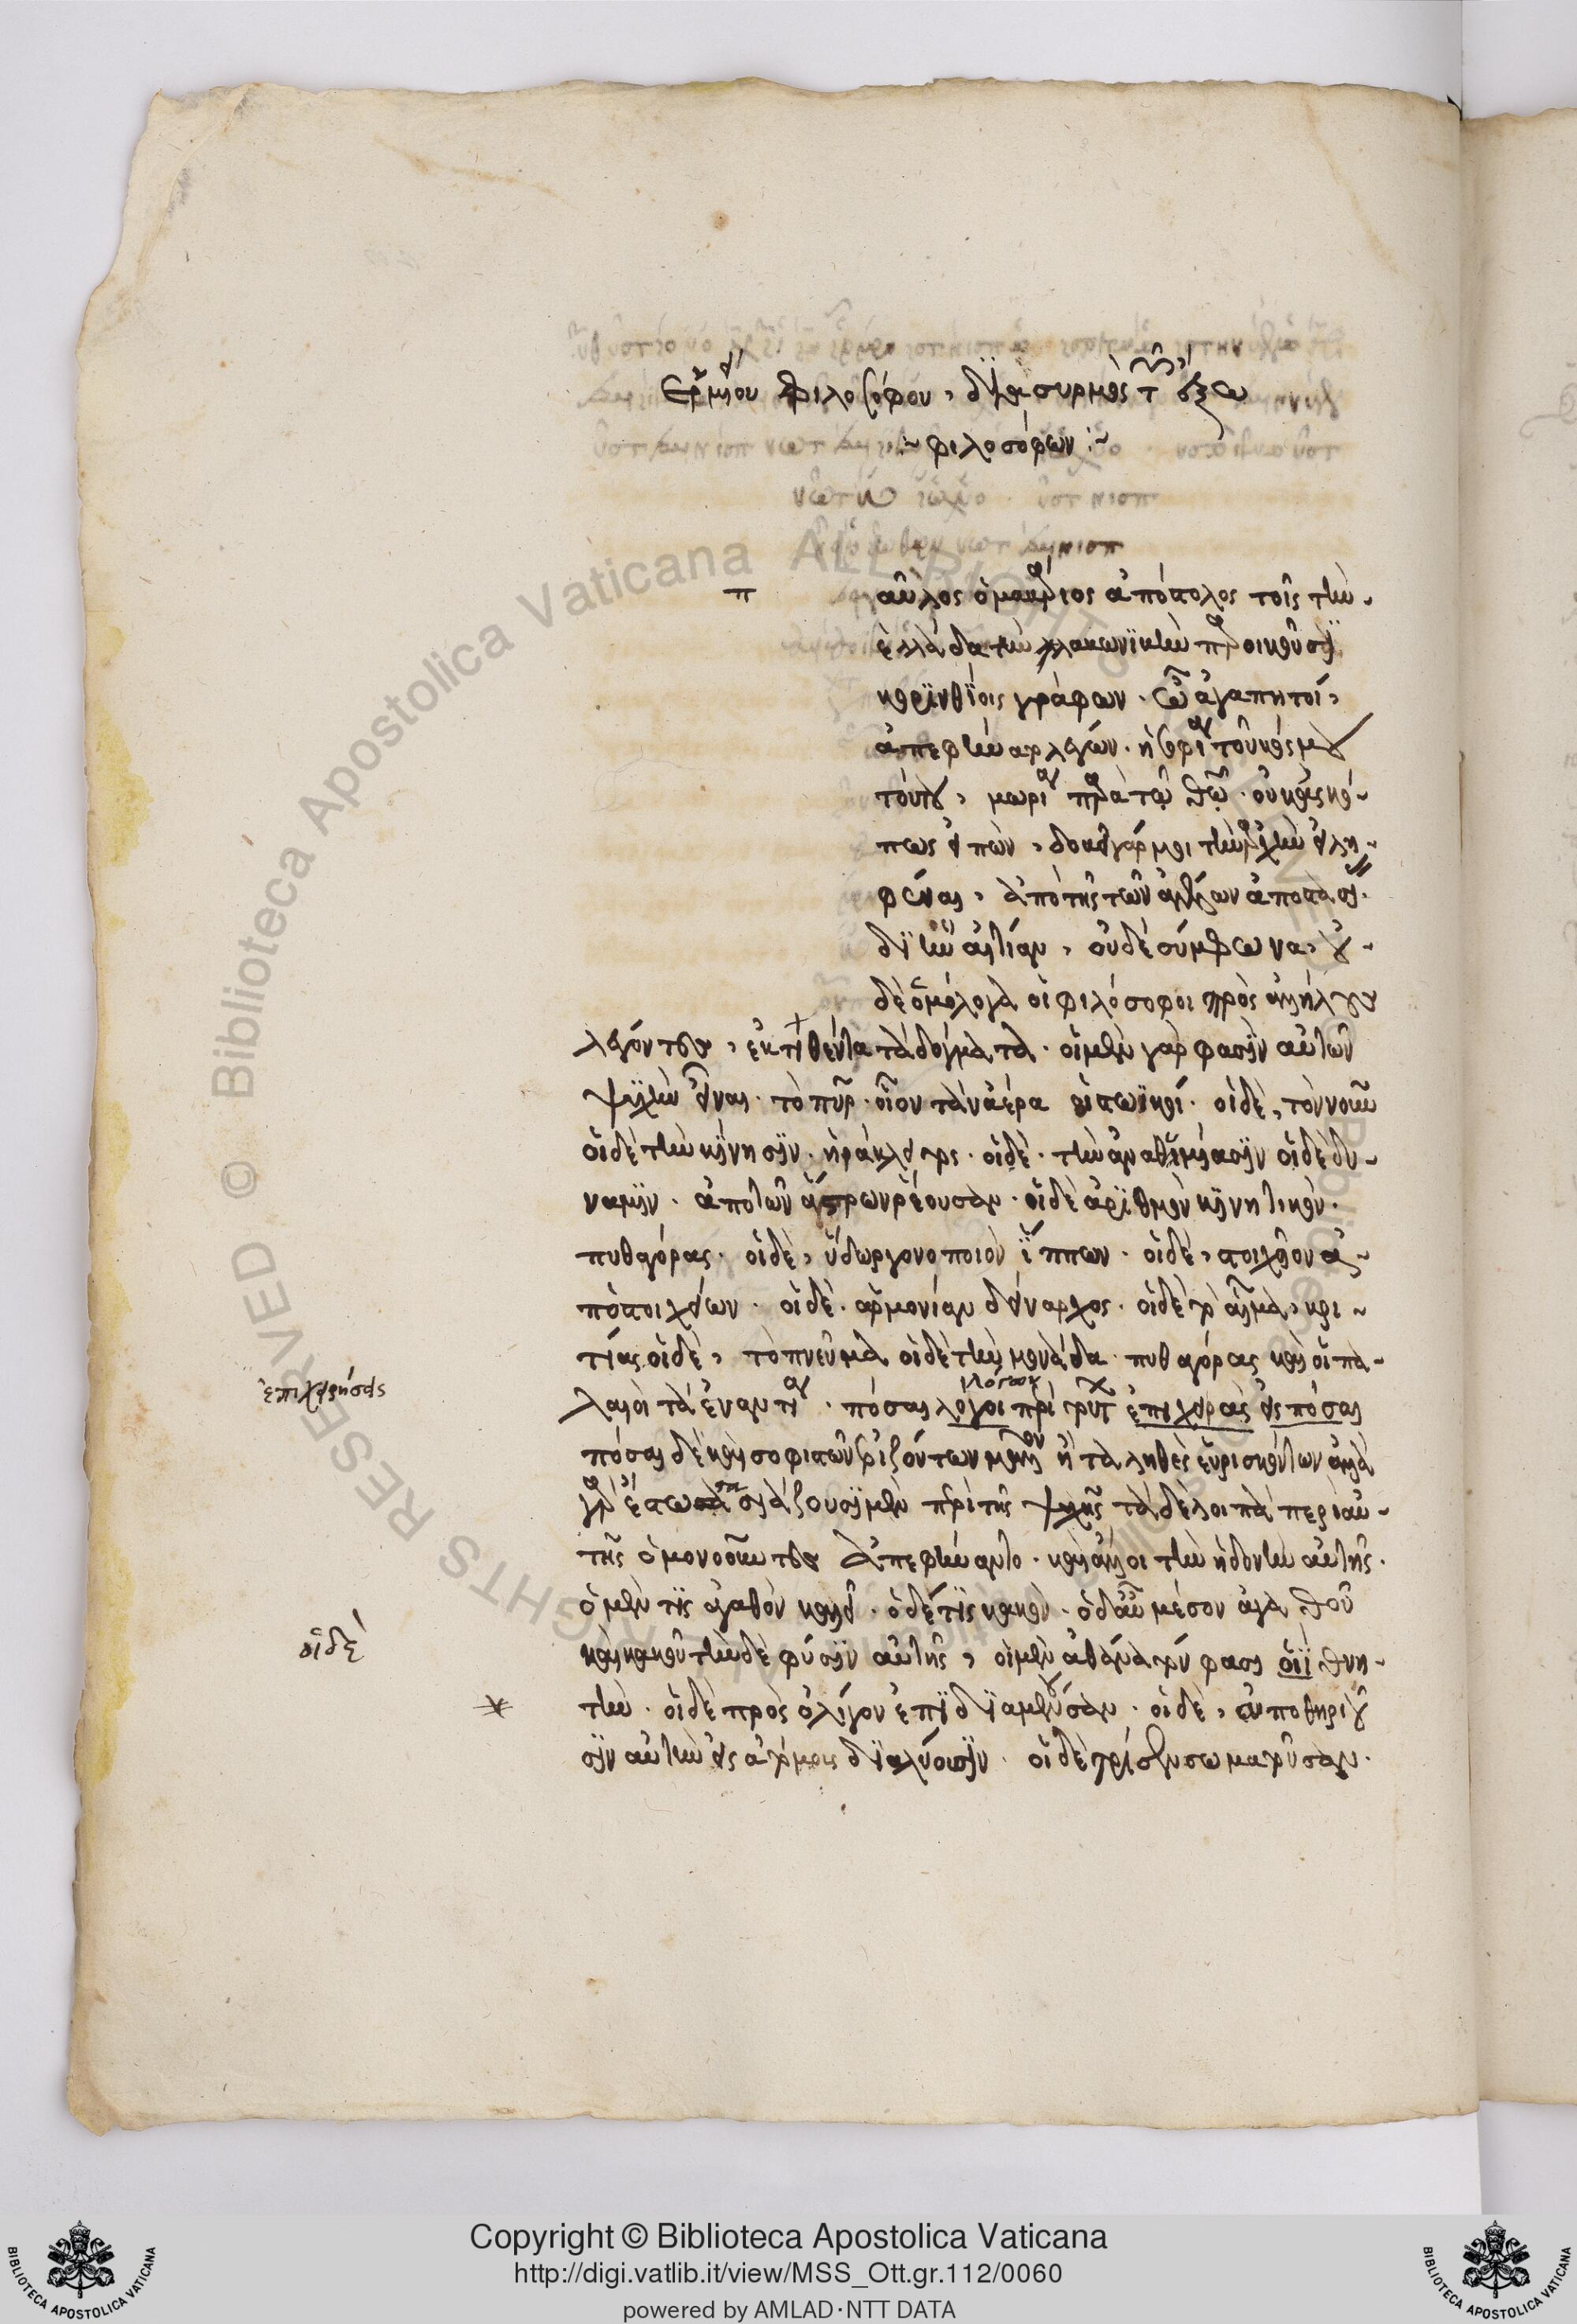 Ἑρμείου φιλοσόφου, διασυρμὸς τῶν ἔξω
φιλοσόφων
π αῦλος ὁ μακάριος ἀπόστολος τοῖς τὴν
ἑλλάδα τὴν λακωνικὴν παροικοῦσι
κορινθίοις γράφων. ὦ ἀγαπητοί,
ἀπεφήνατο λέγων. ἡ σοφία τοῦ κόσμου
τούτου, μωρία παρὰ τῷ θεῷ. οὐκ ἀσκό
πως εἰπών, δοκεῖ γάρ μοι τὴν ἀρχὴν εἰλη
φέναι, ἀπὸ τῆς τῶν ἀγγέλων ἀποστασίας.
δι' ἣν αἰτίαν, οὐδὲ σύμφωνα, οὐ
δὲ ὁμόλογα οἱ φιλόσοφοι πρὸς ἀλλήλους
λέγοντες, ἐκτίθενται τὰ δόγματα. οἱ μὲν γάρ φασιν αὐτῶν
ψυχὴν εἶναι. τὸ πῦρ. οἷον τὸν ἀέρα οἱ στωϊκοί. οἱ δὲ, τὸν νοῦν
οἱ δὲ τὴν κίνησιν. ἡράκλειτος. οἱ δὲ. τὴν ἀναθυμίασιν οἱ δὲ δύ
ναμιν. ἀπὸ τῶν ἄστρων ῥέουσαν. οἱ δὲ ἀριθμὸν κινητικόν.
πυθαγόρας. οἱ δὲ, ὕδωρ γονοποιὸν ἵππων. οἱ δὲ, στοιχεῖον ἀ
πὸ στοιχείων. οἱ δὲ. ἁρμονίαν δείναρχος. οἱ δὲ τὸ αἷμα, κρι
τίας οἱ δὲ, τὸ πνεῦμα οἱ δὲ τὴν μονάδα. πυθαγόρας καὶ οἱ πα
λαιοὶ τὰ ἐναντία. πόσοι λόγοι περὶ τούτων ἐπιχειρὰς εἰς πόσαι
ἐπιχειρήσεις
πόσαι δὲ καὶ σοφιστῶν ἐριζόντων μᾶλλον ἢ τἀληθὲς εὑρισκόντων ἀλλὰ
γὰρ ἔστω στασιάζουσι μὲν περὶ τῆς ψυχῆς τὰ δὲ λοιπὰ περὶ αὐ
τῆς ὁμονοοῦντες ἀπεφήναντο. καὶ ἄλλοι τὴν ἡδονὴν αὐτῆς.
ὁ μέν τις ἀγαθὸν καλεῖ. ὁ δέ τις κακόν. ὁ δ' αὖ μέσον ἀγαθοῦ
οἱ δὲ
καὶ κακοῦ τὴν δὲ φύσιν αὐτῆς, οἱ μὲν ἀθάνατόν φασι οἱ θνη
τήν. οἱ δὲ πρὸς ὀλίγον ἐπιδιαμένουσαν. οἱ δὲ, ἀποθηριοῦ
σιν αὐτὴν εἰς ἀτόμους διαλύουσιν. οἱ δὲ τρὶς ἐνσωματοῦσαν.
Biblioteca Apostolica Vaticana ALL RIGHTS RESERVED ©
Copyright © Biblioteca Apostolica Vaticana
http://digi.vatlib.it/view/MSS_Ott.gr.112/0060
powered by AMLAD·NTT DATA
BIBLIOTECA APOSTOLICA VATICANA
BIBLIOTECA APOSTOLICA VATICANA